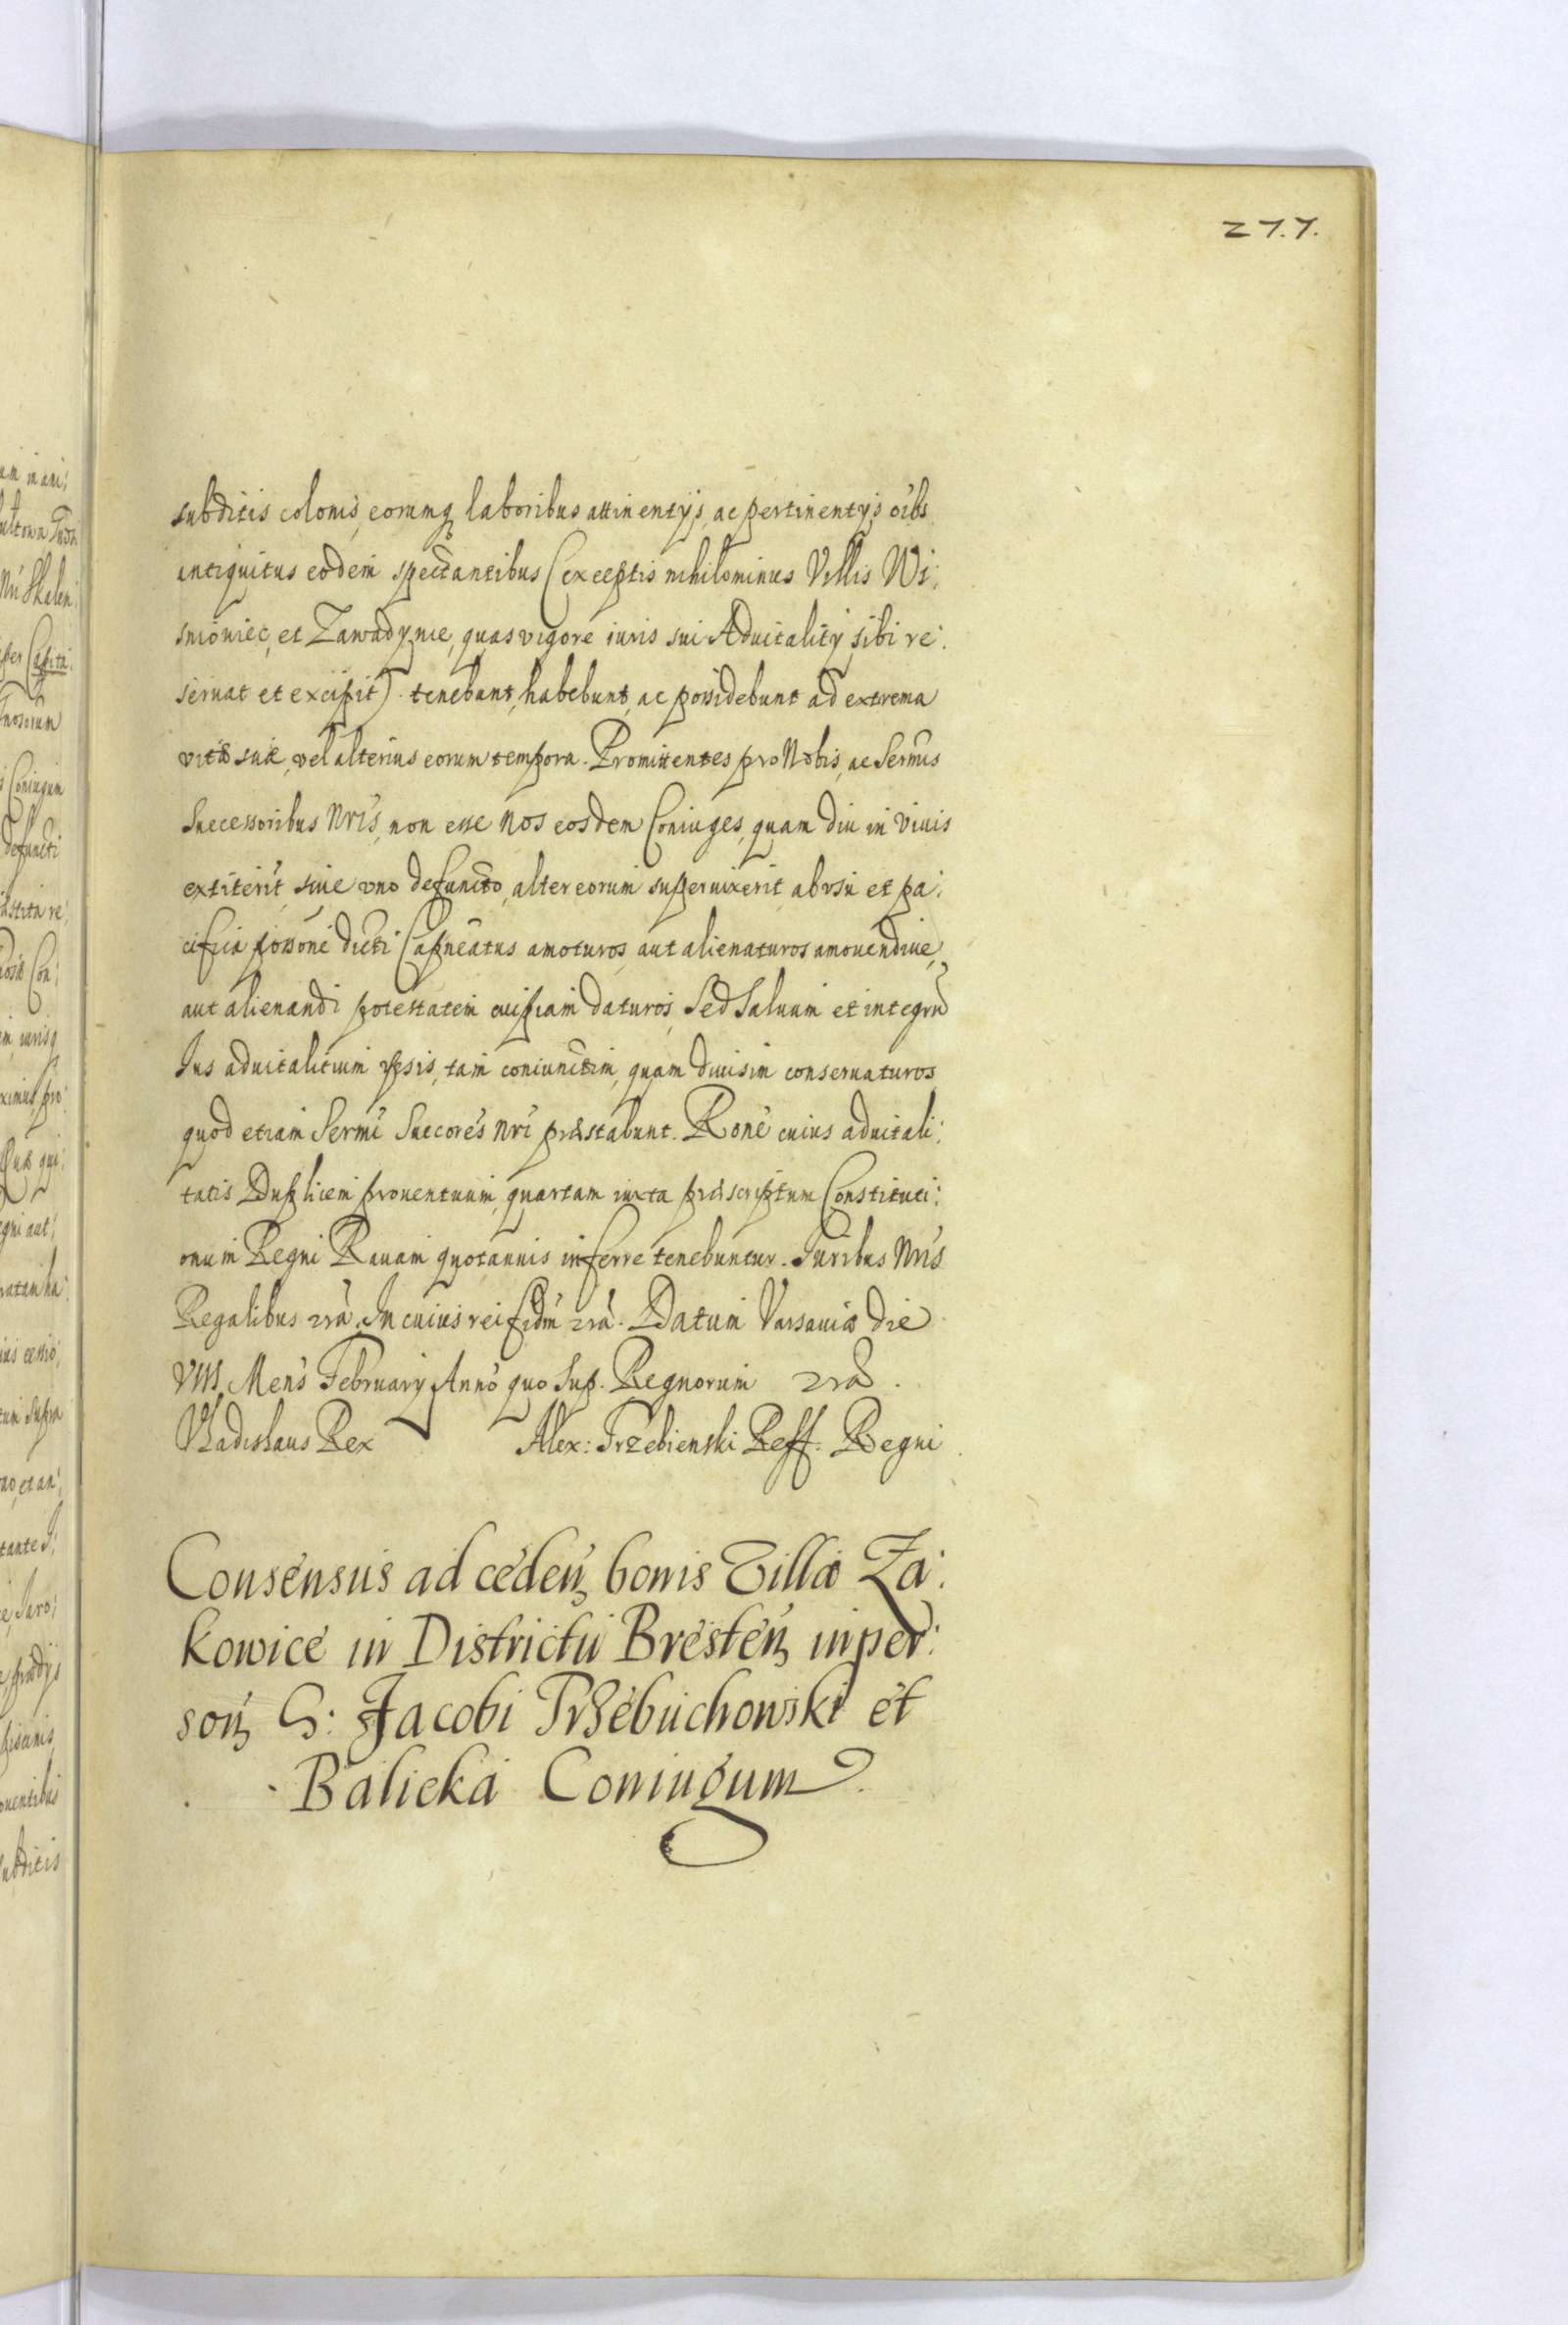 277.
subditis colonis, eorumq laboribus attinentÿs, ac pertinentÿs oibs
antiquitus eodem spectantibus (exceptis nihilominus Villis Wi:
sniowiec, et Zawadynie, quas vigore iuris sui Aduitalitÿ sibi re:
seruat et excipit) tenebunt, habebunt, ac possidebunt ad extrema
vitæ suæ, vel alterius eorum tempora. Promittentes pro Nobis, ac Sermis
Successoribus Nris, non esse nos eosdem Coniuges, quam diu in viuis
extiterit, siue vno defuncto, alter eorum superuixerit, ab vsu et pa:
cifica possone dicti Capneatus amoturos, aut alienaturos amouendiue,
aut alienandi potestatem cuipiam daturos, Sed Saluum et integru
Ius aduitalitium ipsis, tam coniunctim, quam diuisim conseruaturos
quod etiam Sermi Succores nri præstabunt. Rone cuius aduitali:
tatis Duplicem prouentuum, quartam iuxta præscriptum Constituti:
onum Regni Rauam quotannis inferre tenebuntur. Iuribus Nris
Regalibus rra. In cuius rei fidm rra. Datum Varsauiæ die
VIII Mens Februarÿ Anno quo Sup. Regnorum rra.
Vladislaus Rex Alex: Trzebienski Reff. Regni
Consensus ad ceden bonis Villæ Za:
kowice in Districtu Bresten in per:
son G: Jacobi Trzebuchowski et
Balicka Coniugum